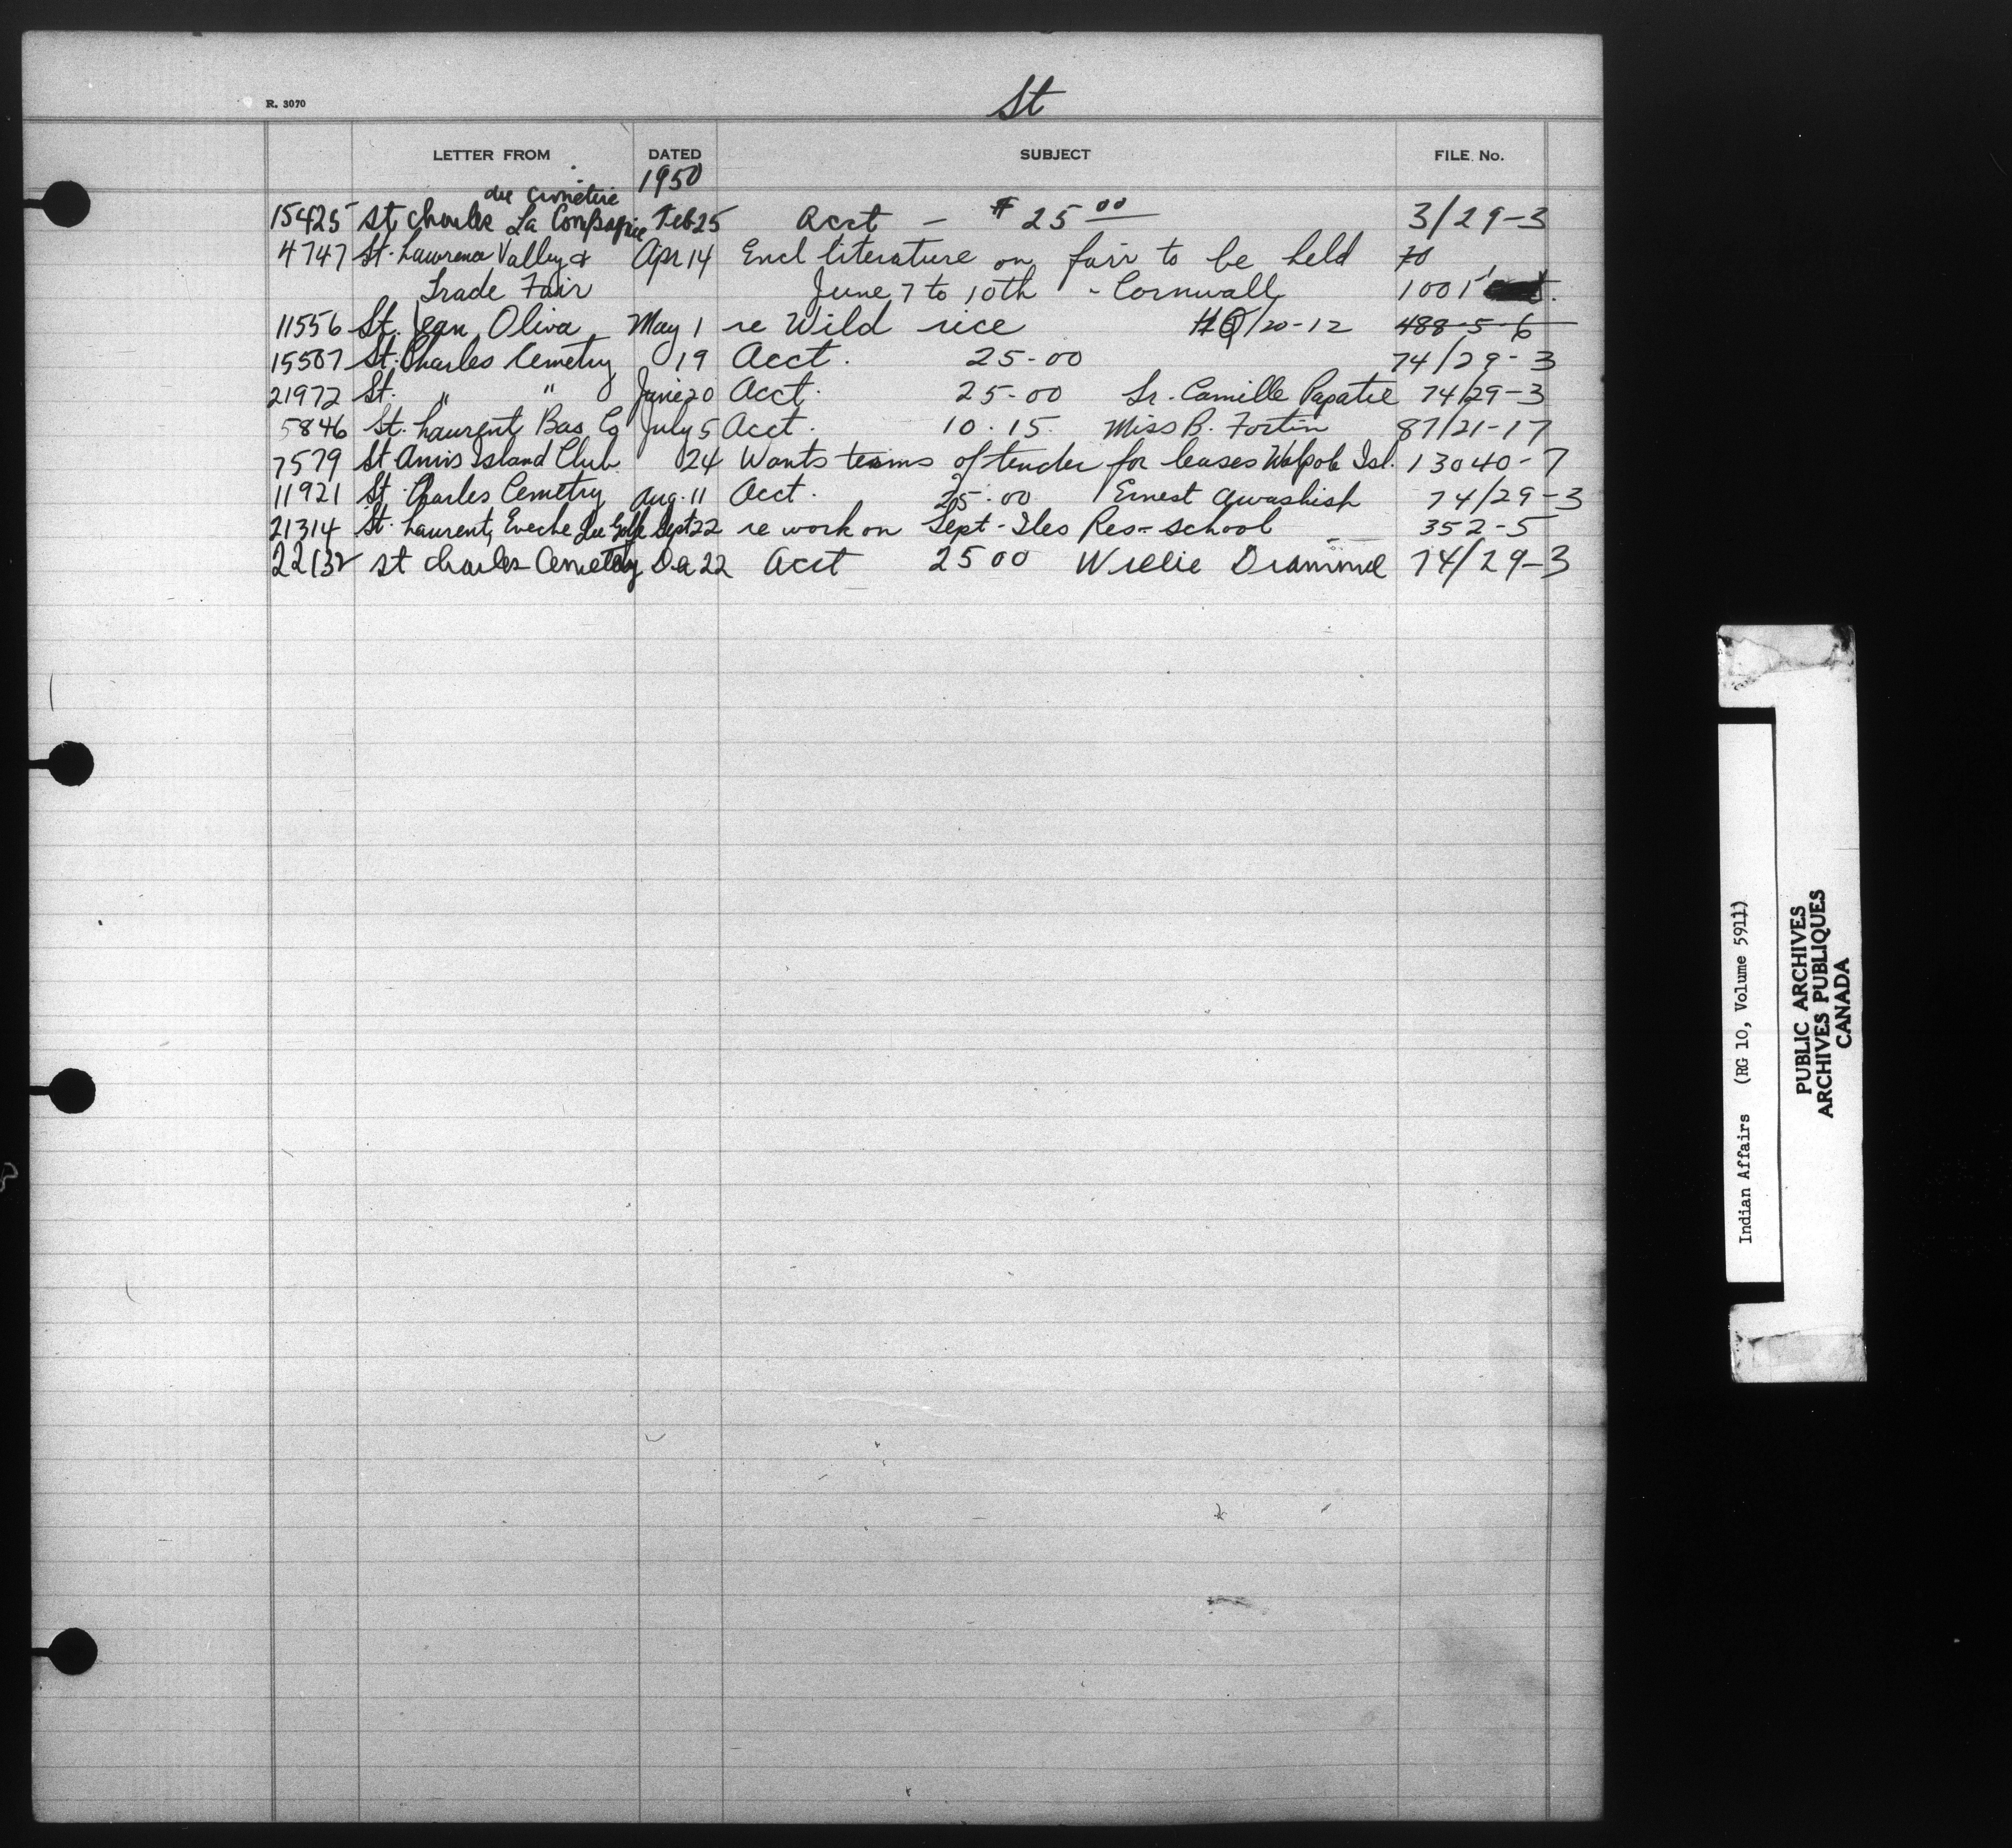 R. 3070
St
LETTER FROM DATED SUBJECT FILE No.
1950
du Cimetiere
15425 St Charles La Compagnie Feb 25 Acct – $25 00 3/29-3
4747 St. Lawrence Valley & Apr 14 Encl literature on fair to be held
Trade Fair June 7 to 10th - Cornwall 1001
11556 St. Jean, Oliva May 1 re Wild rice /20-12 488-5-6
15507 St. Charles Cemetry 19 Acct. 25-00 74/29-3
21972 St. " " June 20 Acct. 25-00 Sr. Camille Papatie 74/29-3
5846 St. Laurent Bas Co July 5 Acct. 10.15 Miss B. Fortin 87/21-17
7579 St Anns Island Club 24 Wants terms of tender for leases Walpole Isl. 13040-7
11921 St. Charles Cemetry Aug. 11 Acct. 25.00 Ernest Awashish 74/29-3
21314 St. Laurent, Eveche du Golfe Sept 22 re work on Sept-Iles Res- school 352-5
22132 St Charles Cemetery 22 Acct 25 00 Willie 74/29-3
Indian Affairs (RG 10, Volume 5911)
PUBLIC ARCHIVES
ARCHIVES PUBLIQUES
CANADA